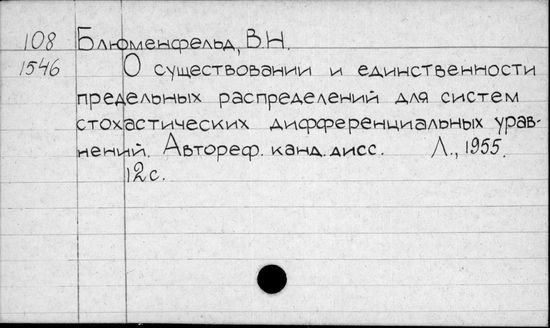 108 Блюменфельд, В.Н.
1546 О существовании и единственности
предельных распределений для систем
стохастических дифференциальных урав-
нений. Автореф. канд. дисс. Л., 1955.
12 с.